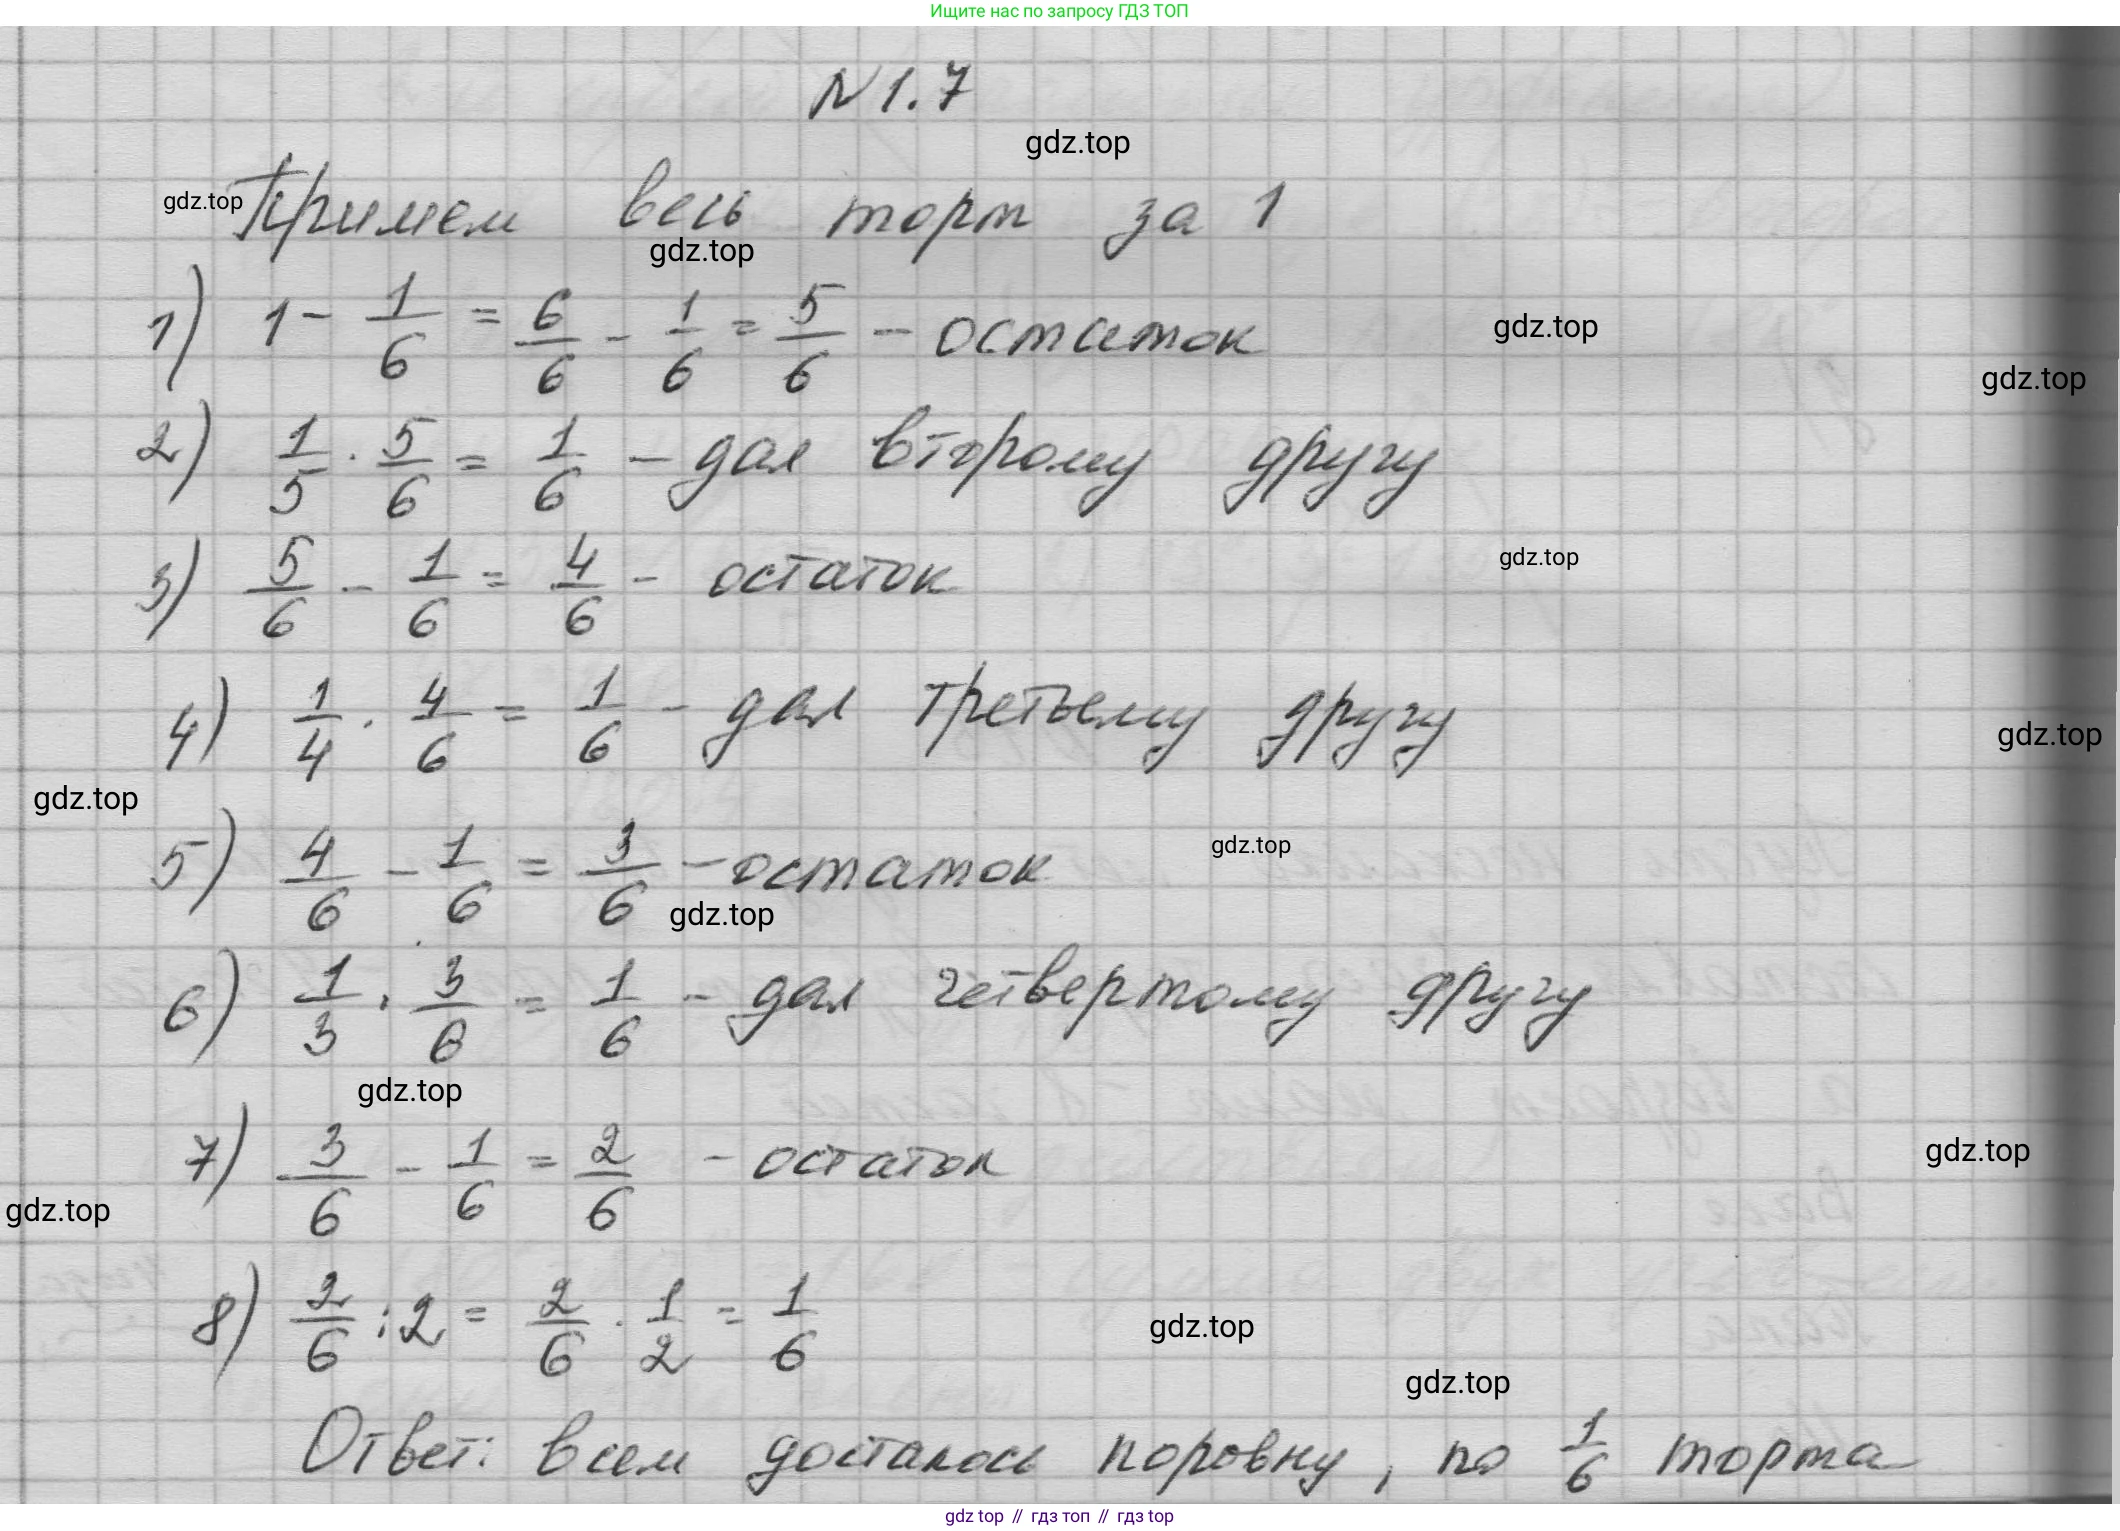 Ищите нас по запросу ГДЗ ТОП
N 1.7
gdz.top
gdz.top Примем весь торт за 1
gdz.top
1) 1 - 1/6 = 6/6 - 1/6 = 5/6 - остаток
gdz.top
gdz.top
2) 1/5 · 5/6 = 1/6 - дал второму другу
3) 5/6 - 1/6 = 4/6 - остаток
gdz.top
4) 1/4 · 4/6 = 1/6 - дал третьему другу
gdz.top
gdz.top
5) 4/6 - 1/6 = 3/6 - остаток
gdz.top
gdz.top
6) 1/3 · 3/6 = 1/6 - дал четвертому другу
gdz.top
7) 3/6 - 1/6 = 2/6 - остаток
gdz.top
gdz.top
8) 2/6 : 2 = 2/6 · 1/2 = 1/6
gdz.top
gdz.top
Ответ: всем досталось поровну, по 1/6 торта
gdz top // гдз топ // гдз top